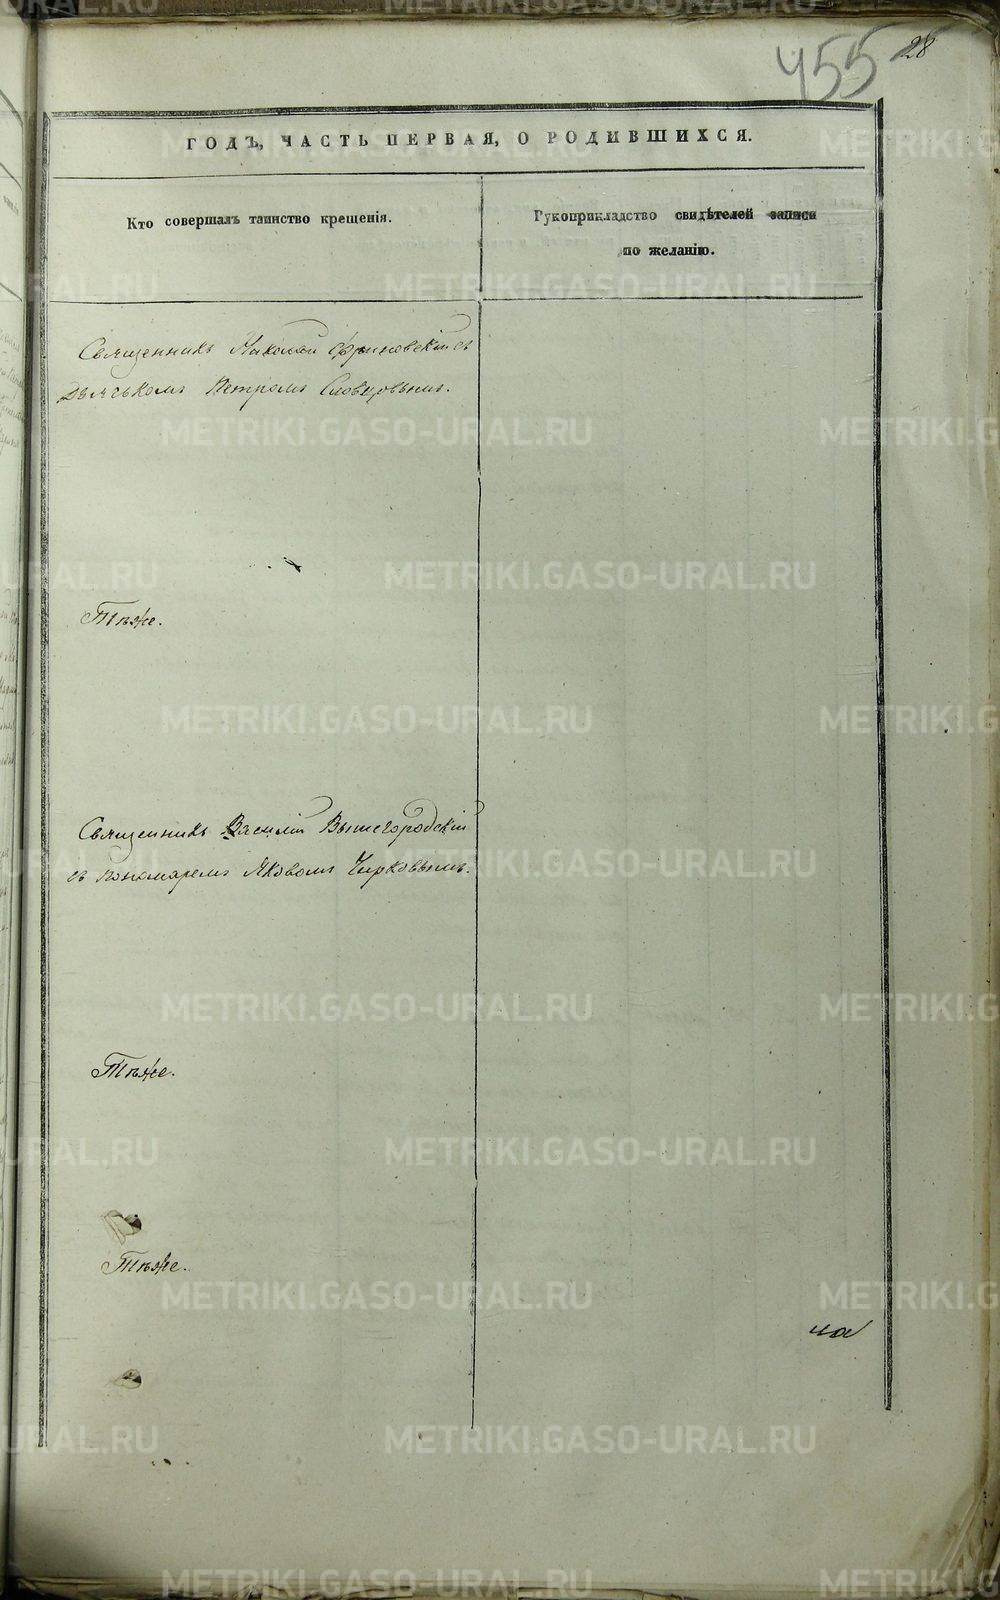 455 28
ГОДЪ, ЧАСТЬ ПЕРВАЯ, О РОДИВШИХСЯ.
Кто совершалъ таинство крещенія.
Рукоприкладство свидѣтелей записи
по желанію.
Священникъ Николай съ
Дьячькомъ Петромъ Словцовымъ.
Тѣже.
Священникъ Василій Вышегородскій
съ пономаремъ Яковомъ Чирковымъ.
Тѣже.
Тѣже.
METRIKI.GASO-URAL.RU